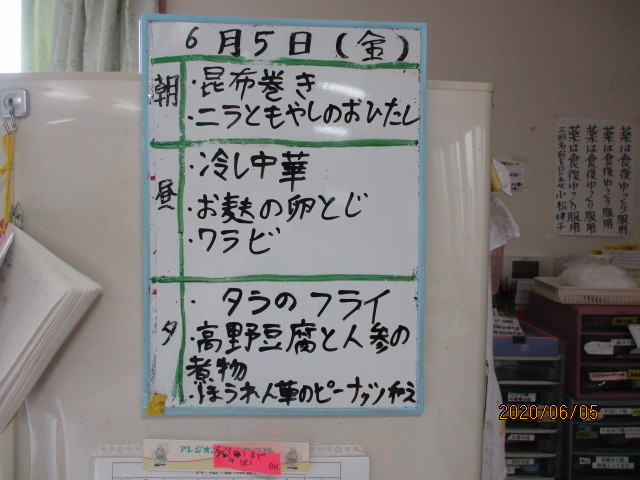 6月5日(金)
朝
・昆布巻き
・ニラともやしのおひたし
昼
・冷し中華
・お麩の卵とじ
・ワラビ
夕
・タラのフライ
・高野豆腐と人参の
煮物
・ほうれん草のピーナッツ和え
薬は食後ゆっくり服用
薬は食後ゆっくり服用
薬は食後ゆっくり服用
薬は食後ゆっくり服用
アレジオン
まで
OK
2020/06/05